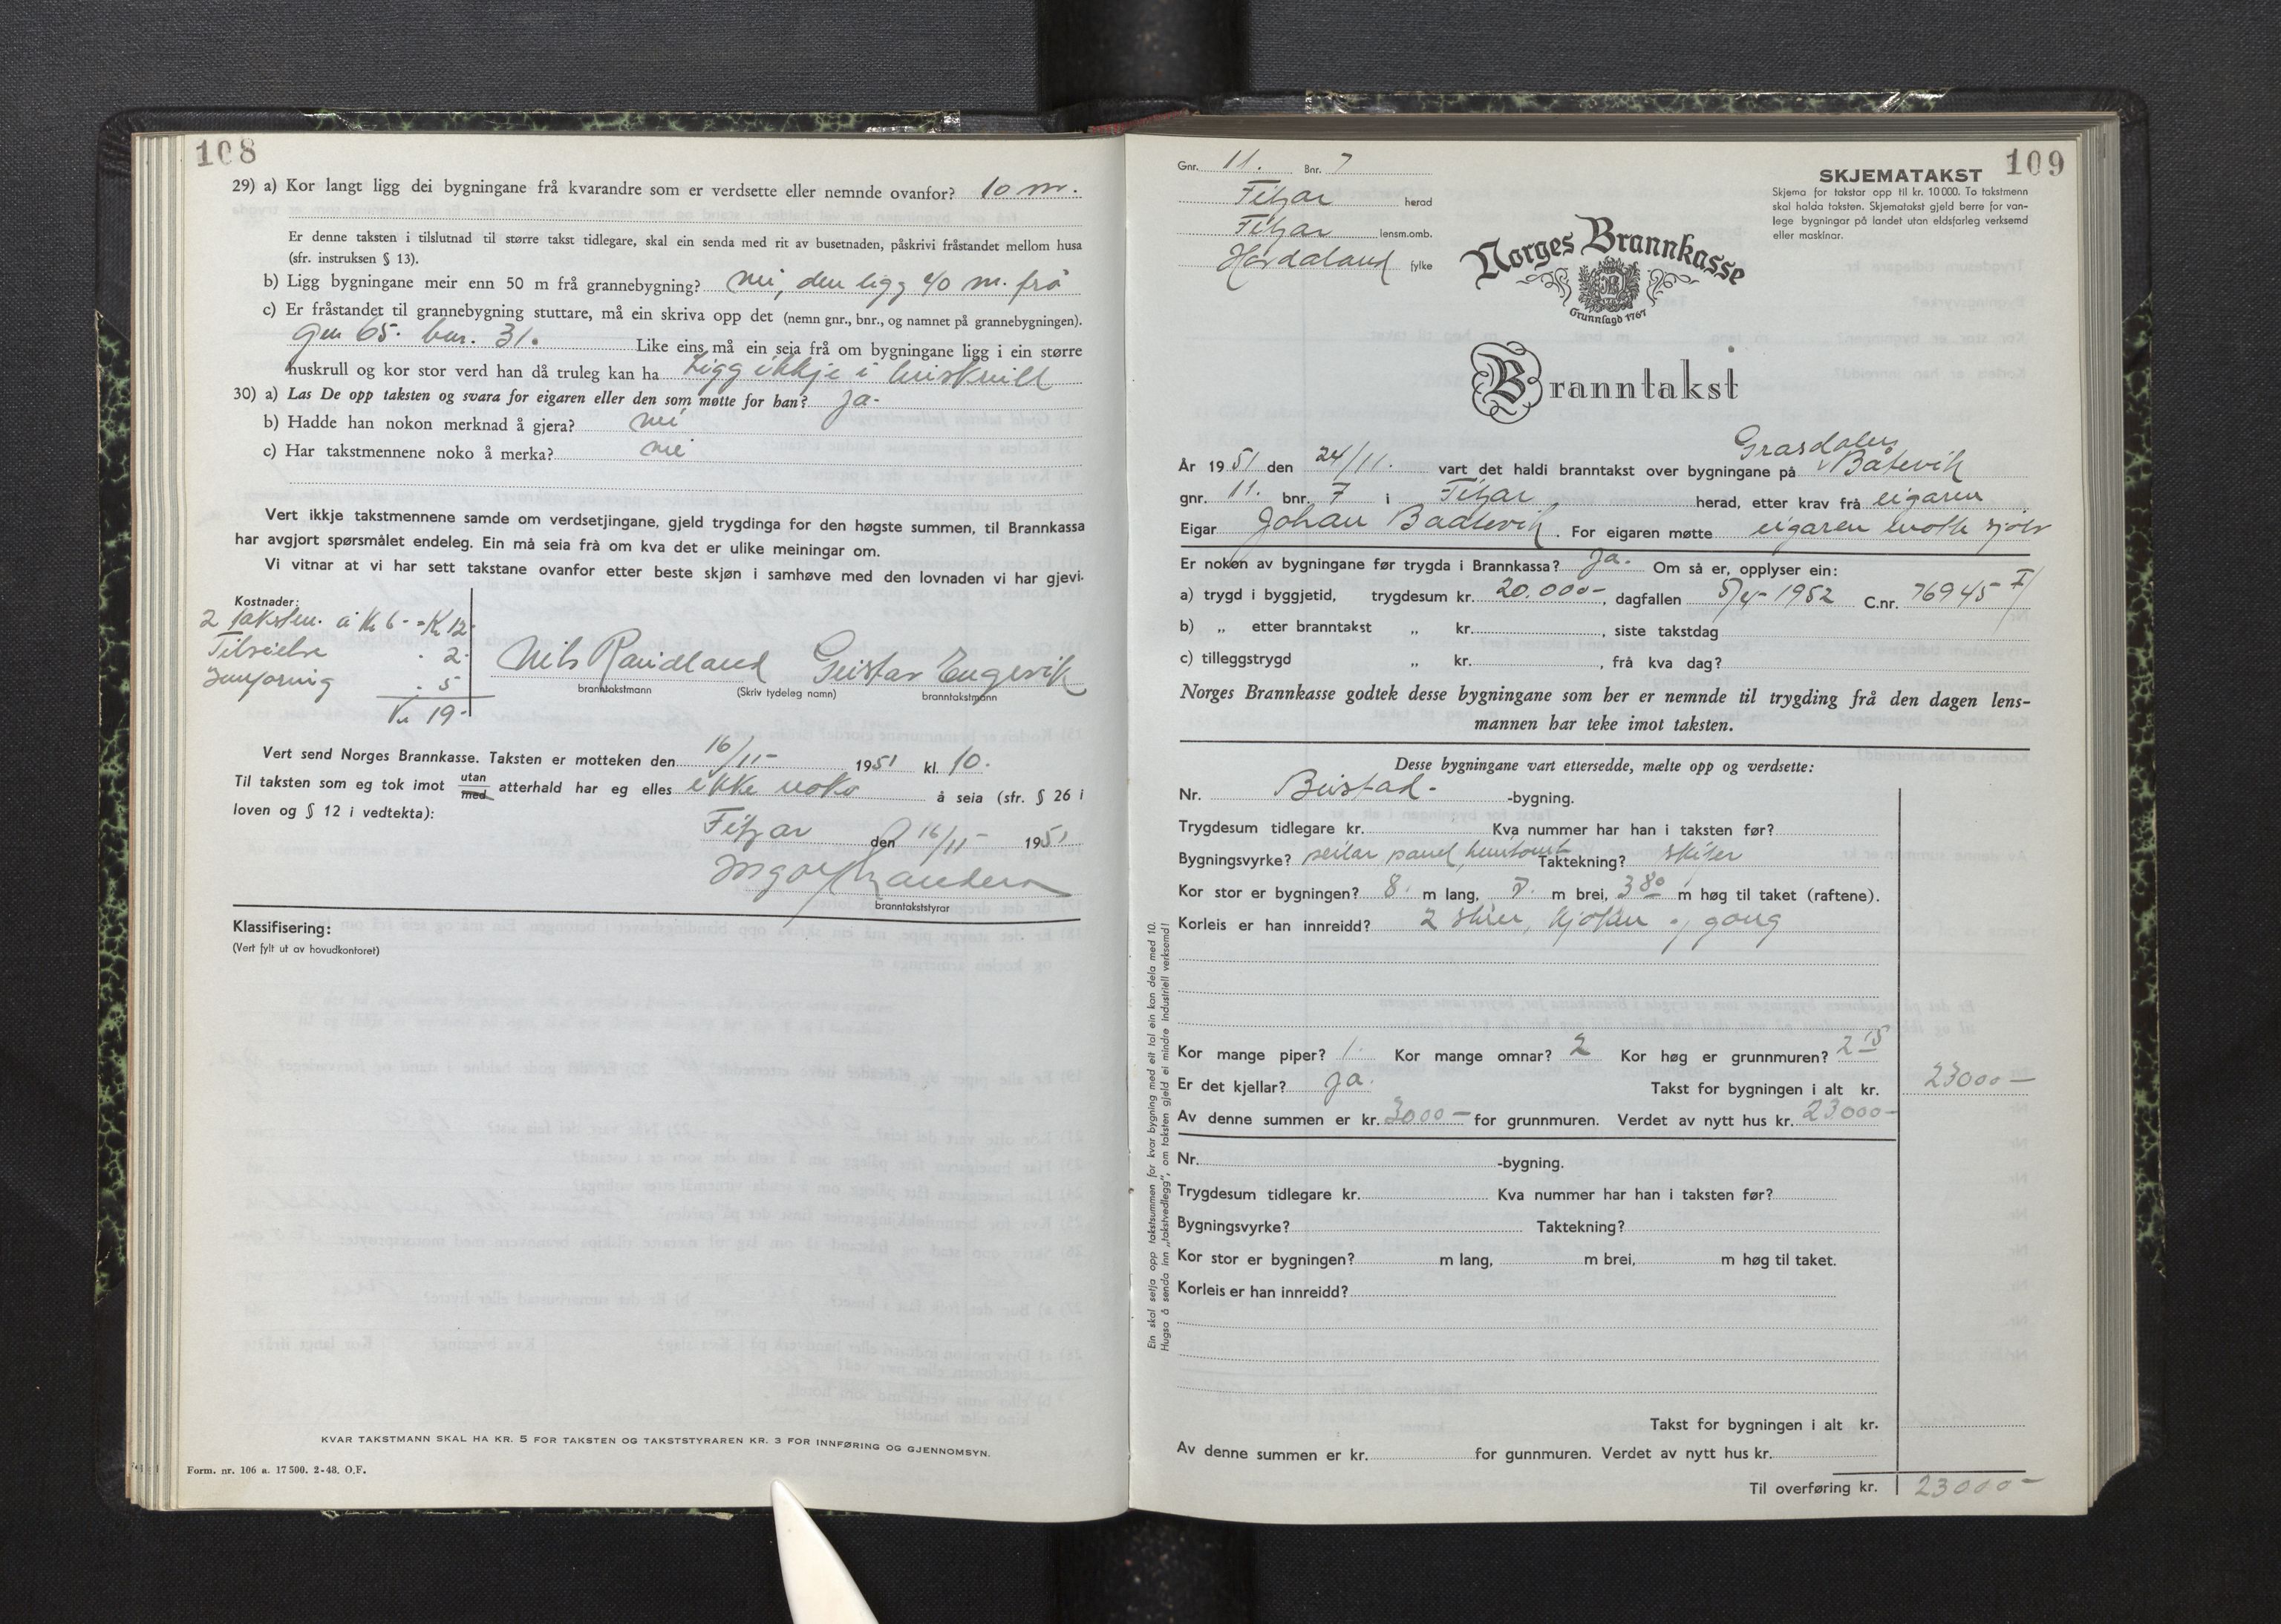 108
29) a) Kor langt ligg dei bygningane frå kvarandre som er verdsette eller nemnde ovanfor? 10 m.
Er denne taksten i tilslutnad til større takst tidlegare, skal ein senda med rit av busetnaden, påskrivi fråstandet mellom husa
(sfr. instruksen § 13).
b) Ligg bygningane meir enn 50 m frå grannebygning? nei, den ligg 40 m. frå
c) Er fråstandet til grannebygning stuttare, må ein skriva opp det (nemn gnr., bnr., og namnet på grannebygningen).
gnr 65. bnr. 31. Like eins må ein seia frå om bygningane ligg i ein større
huskrull og kor stor verd han då truleg kan ha Ligg ikkje i huskrull
30) a) Las De opp taksten og svara for eigaren eller den som møtte for han? Ja-
b) Hadde han nokon merknad å gjera? nei
c) Har takstmennene noko å merka? nei
Vert ikkje takstmennene samde om verdsetjingane, gjeld trygdinga for den høgste summen, til Brannkassa
har avgjort spørsmålet endeleg. Ein må seia frå om kva det er ulike meiningar om.
Vi vitnar at vi har sett takstane ovanfor etter beste skjøn i samhøve med den lovnaden vi har gjevi.
Kostnader:
2 takstm. á Kr 6- = Kr 12-
Tilseielse - 2-
Innføring - 5
Kr 19-
Nils Raudland Gustav Engevik
branntakstmann (Skriv tydeleg namn) branntakstmann
Vert send Norges Brannkasse. Taksten er motteken den 16/11- 1951 kl. 10.
Til taksten som eg tok imot utan/med atterhald har eg elles ikke noko å seia (sfr. § 26 i
loven og § 12 i vedtekta):
Fitjar den 16/11- 1951
branntakststyrar
Klassifisering:
(Vert fylt ut av hovudkontoret)
KVAR TAKSTMANN SKAL HA KR. 5 FOR TAKSTEN OG TAKSTSTYRAREN KR. 3 FOR INNFØRING OG GJENNOMSYN.
Form. nr. 106 a. 17 500. 2-48. O.F.
109
Gnr. 11. Bnr. 7
Fitjar herad
Fitjar lensm.omb.
Hordaland fylke
SKJEMATAKST
Skjema for takstar opp til kr. 10 000. To takstmenn
skal halda taksten. Skjematakst gjeld berre for van-
lege bygningar på landet utan eldsfarleg verksemd
eller maskinar.
Norges Brannkasse
Grunnlagd 1767
Branntakst
Grasdalen
År 1951 den 24/11. vart det haldi branntakst over bygningane på Båtevik
gnr. 11. bnr. 7 i Fitjar herad, etter krav frå eigaren
Eigar Johan Baatevik. For eigaren møtte eigaren møtte sjølv
Er nokon av bygningane før trygda i Brannkassa? Ja. Om så er, opplyser ein:
a) trygd i byggjetid, trygdesum kr. 20.000-, dagfallen 5/4- 1952 C.nr. 76945 I/
b) „ etter branntakst „ kr. , siste takstdag
c) tilleggstrygd „ kr. , frå kva dag?
Norges Brannkasse godtek desse bygningane som her er nemnde til trygding frå den dagen lens-
mannen har teke imot taksten.
Desse bygningane vart ettersedde, mælte opp og verdsette:
Nr. Bustad- -bygning.
Trygdesum tidlegare kr. Kva nummer har han i taksten før?
Bygningsvyrke? panel, Taktekning? skifer
Kor stor er bygningen? 8. m lang, 7. m brei, 3 80 m høg til taket (raftene).
Korleis er han innreidd? 2 stuer, kjøken og gang
Kor mange piper? 1. Kor mange omnar? 2 Kor høg er grunnmuren? 2 15
Er det kjellar? Ja. Takst for bygningen i alt kr. 23000-
Av denne summen er kr. 3000- for grunnmuren. Verdet av nytt hus kr. 23000-
Nr. -bygning.
Trygdesum tidlegare kr. Kva nummer har han i taksten før?
Bygningsvyrke? Taktekning?
Kor stor er bygningen? m lang, m brei, m høg til taket.
Korleis er han innreidd?
Takst for bygningen i alt kr.
Av denne summen er kr. for gunnmuren. Verdet av nytt hus kr.
Til overføring kr. 23000-
Ein skal setja opp takstsummen for kvar bygning med eit tal ein kan dela med 10.
Hugsa å senda inn „takstvedlegg", om taksten gjeld ei mindre industriell verksemd!